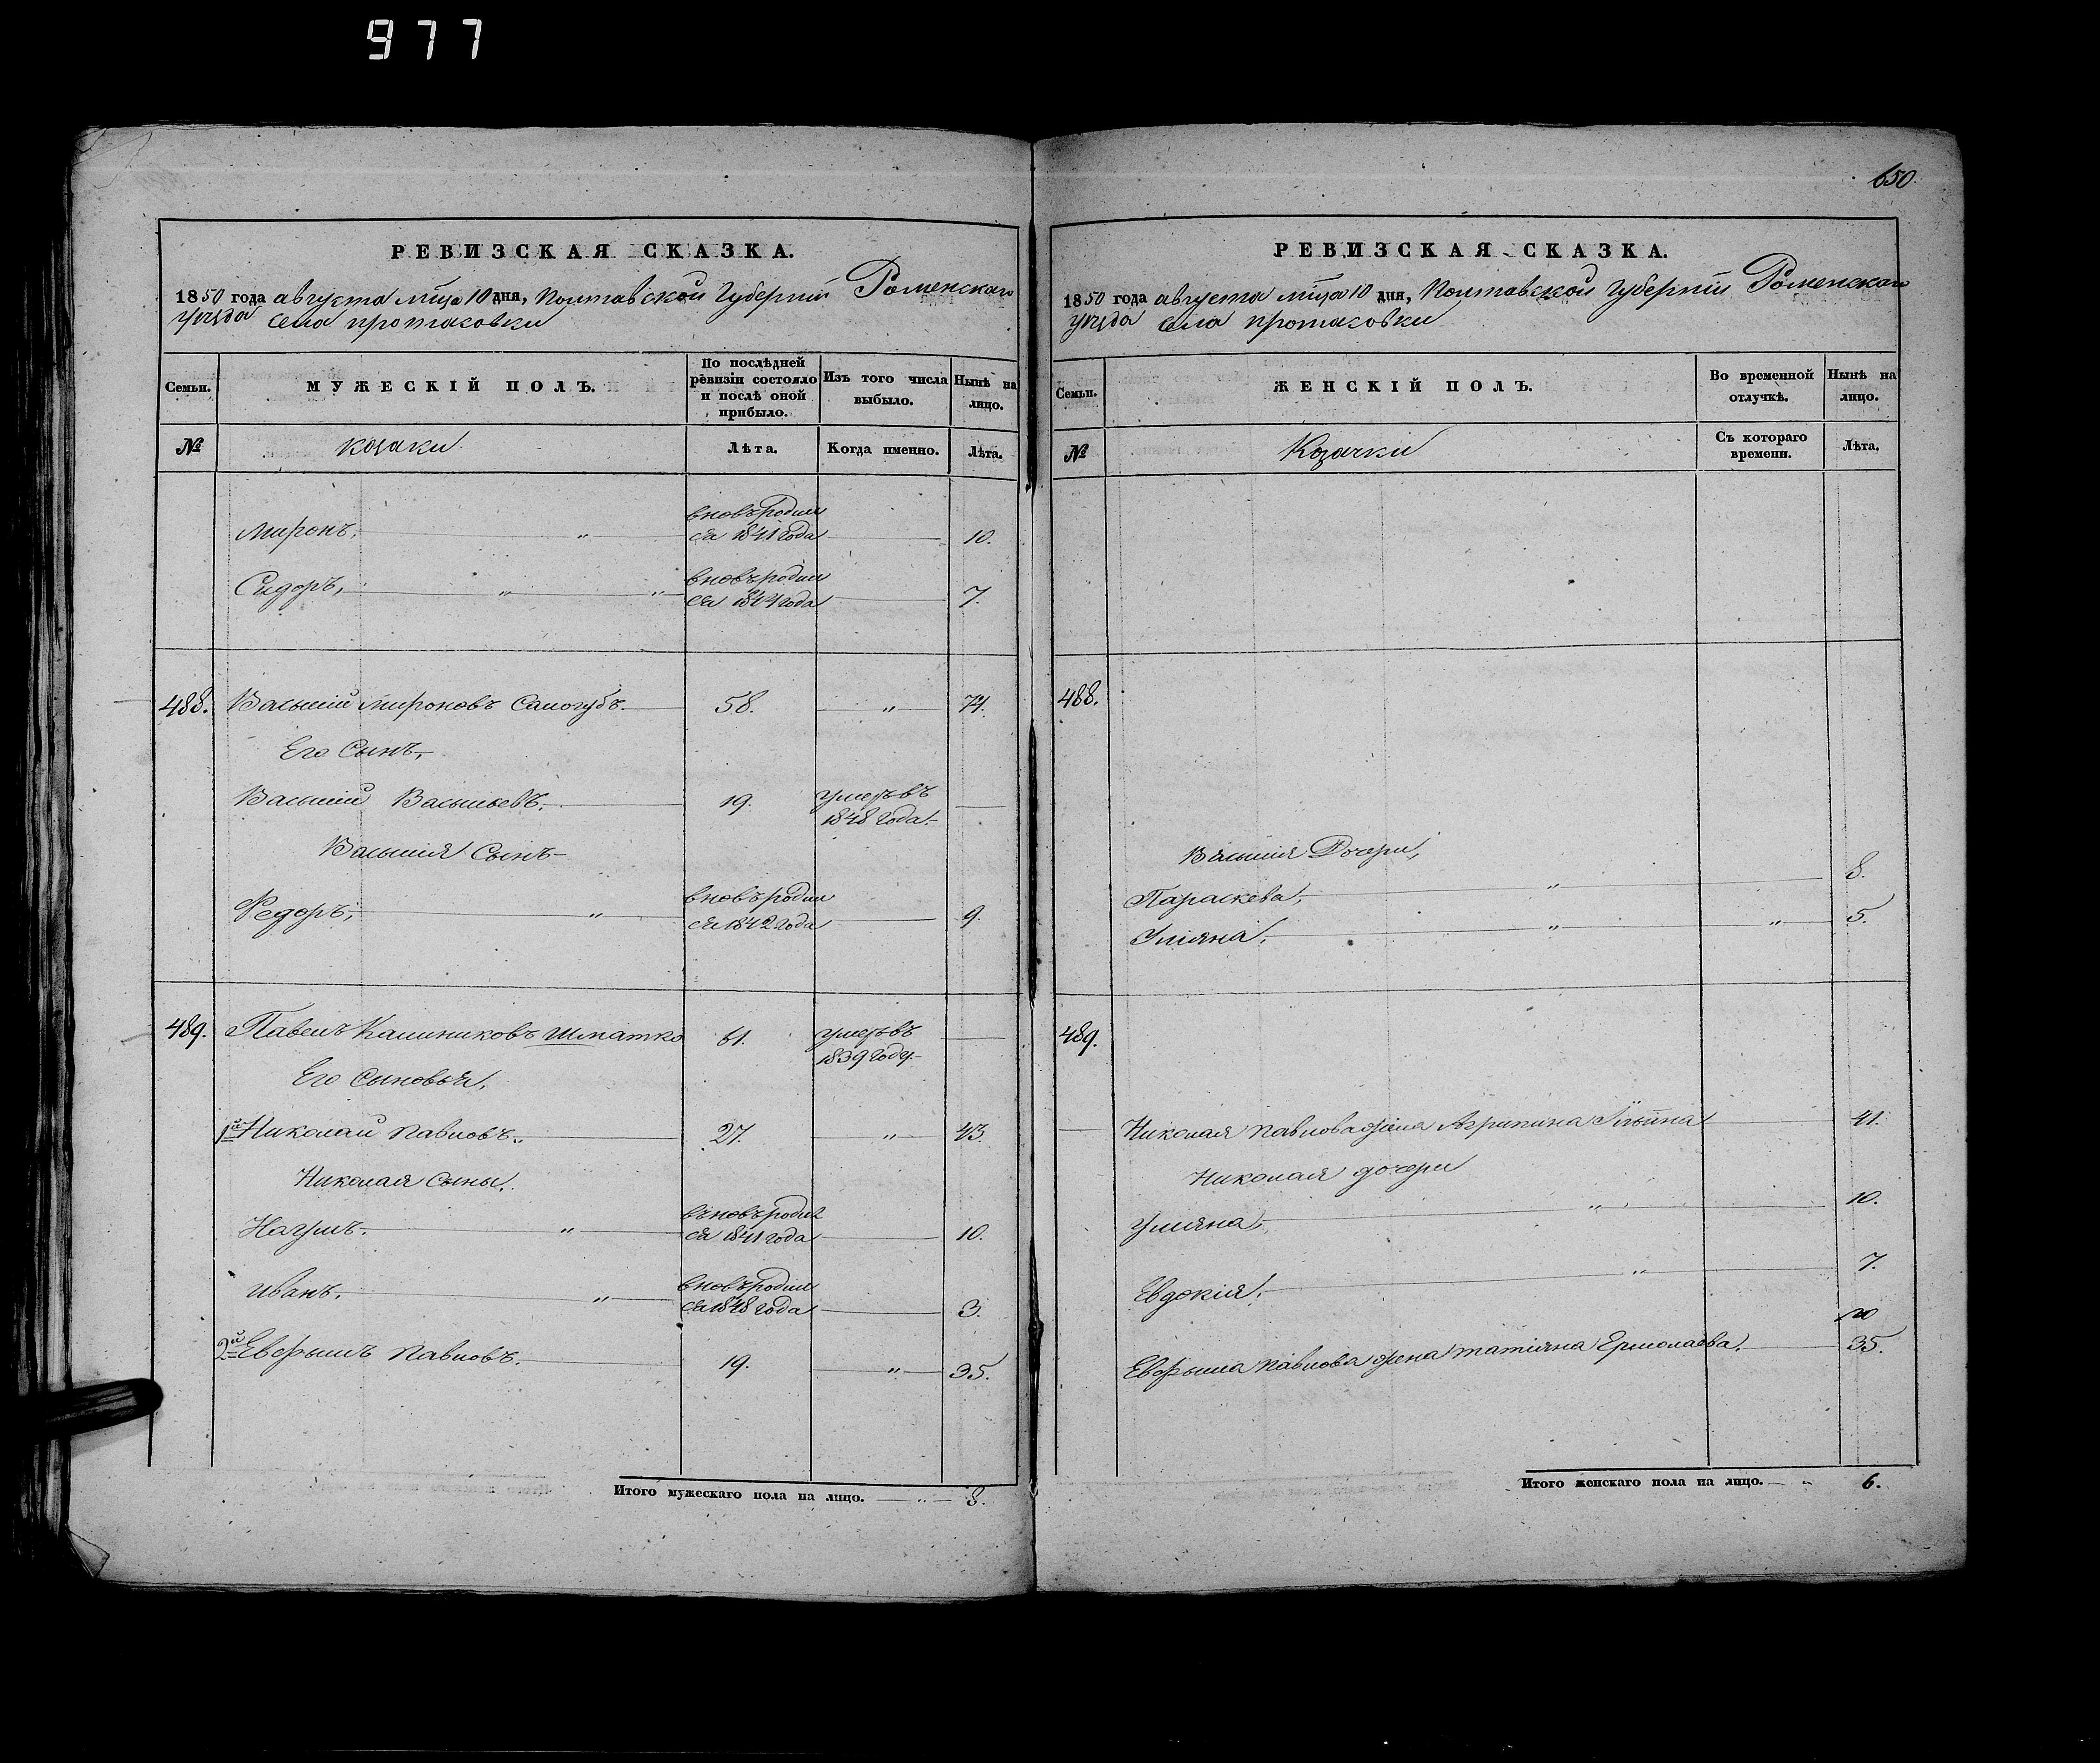 977
650
РЕВИЗСКАЯ СКАЗКА.
1850 года августа мца 10 дня, Полтавской Губерніи Роменскаго
уѣзда села протасовки
Семьи.
МУЖЕСКІЙ ПОЛЪ.
По послѣдней
ревизіи состояло
и послѣ оной
прибыло.
Изъ того числа
выбыло.
Нынѣ на
лицо.
№
козаки
Лѣта.
Когда именно.
Лѣта.
Миронъ, " вновь родил
ся 1841 года 10.
Сидоръ, " " вновь родил
ся 1844 года 7.
488. Василий Мироновъ Самогубъ. 58. " 74.
Его Сынъ,
Василий Васильевъ. 19. умеръ въ
1848 года.
Василия Сынъ
Федоръ, " вновь родил
ся 1842 года 9.
489. Павелъ Калиниковъ Шматко 61. умеръ въ
1839 году.
Его Сыновья,
1й Николай Павловъ. 27. " 43.
Николая Сыны,
Наумъ. " вновь родил
ся 1841 года 10.
Иванъ. " вновь родил
ся 1848 года 3.
2й Евфымъ Павловъ. 19. " 35.
Итого мужескаго пола на лицо. " 8.
РЕВИЗСКАЯ СКАЗКА.
1850 года августа мца 10 дня, Полтавской Губерніи Роменскаго
уѣзда села протасовки
Семьи.
ЖЕНСКІЙ ПОЛЪ.
Во временной
отлучкѣ.
Нынѣ на
лицо.
№
Козачки
Съ котораго
времени.
Лѣта.
488.
Василия Дочери,
Параскева, " 8.
Улияна, " " 5.
489.
Николая Павлова жена Агрипина Ильина 41.
Николая дочери
Улияна, " 10.
Евдокія, " 7.
Евфыма Павлова жена татияна Ермолаева. 35.
Итого женскаго пола на лицо. " 6.